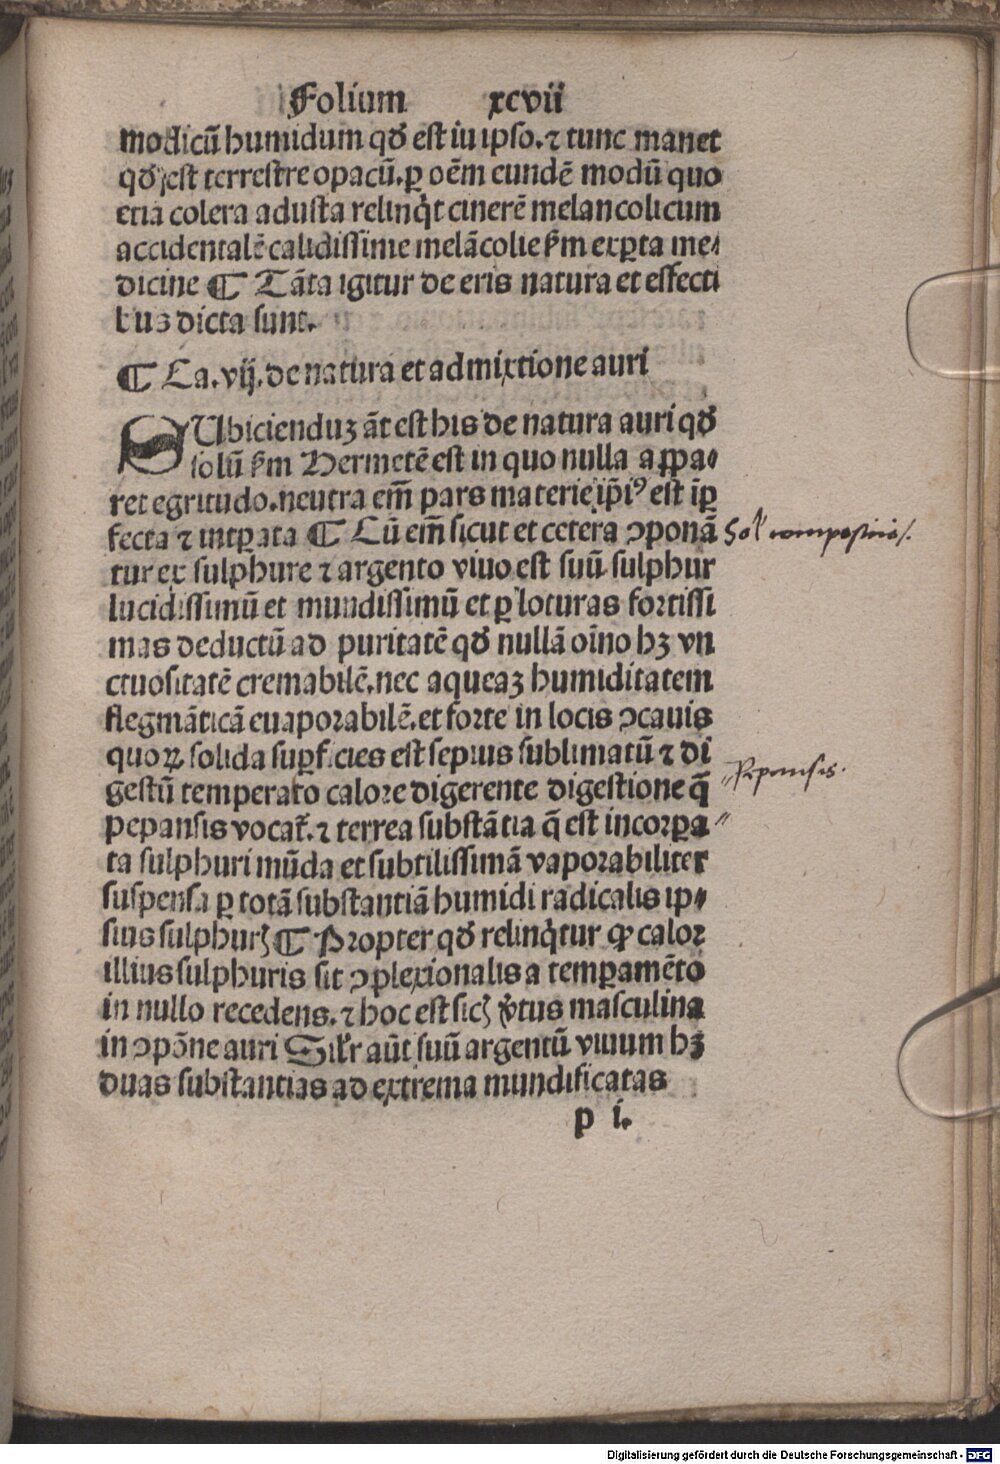 Folium xcvii
modicū humidum qđ est iu ipso. ⁊ tunc manet
qđ est terrestre opacū. ꝑ oēm eundē modū quo
etiā colera adusta relinq̇t cinerē melancolicum
accidentalē calidissime melācolie ẜm exꝑta me⸗
dicine ¶ Tāta igitur de eris natura et effecti
bus dicta sunt.
¶ Ca. vij. de natura et admixtione auri
SUbicienduꝫ āt est his de natura auri qđ
solū ẜm Hermetē est in quo nulla aꝓpa⸗
ret egritudo. neutra em̄ pars materie ip̄iꝰ est īꝑ
fecta ⁊ intꝑata ¶ Cū em̄ sicut et cetera ꝯponā
tur ex sulphure ⁊ argento viuo est suū sulphur
lucidissimū et mundissimū et ꝑ loturas fortissi
mas deductū ad puritatē qđ nullā oīno hꝫ vn
ctuositatē cremabilē. nec aqueaꝫ humiditatem
flegmāticā euaporabilē. et forte in locis ꝯcauis
quoꝝ solida suꝑficies est sepius sublimatū ⁊ di
gestū temperato calore digerente digestione q̄
pepansis vocat̄. ⁊ terrea substātia q̄ est incorꝑa
ta sulphuri mūda et subtilissimā vaporabiliter
suspensa ꝑ totā substantiā humidi radicalis ip⸗
sius sulphurꝭ ¶ Propter qđ relinq̇tur ꝙ calor
illius sulphuris sit ꝯplexionalis a temꝑamēto
in nullo recedens. ⁊ hoc est sicꝭ v̇tus masculina
in ꝯpōne auri Silr̄ aūt suū argentū viuum hꝫ
duas substantias ad extrema mundificatas
p i.
Sol compositus
Pepansis.
Digitalisierung gefördert durch die Deutsche Forschungsgemeinschaft - DFG